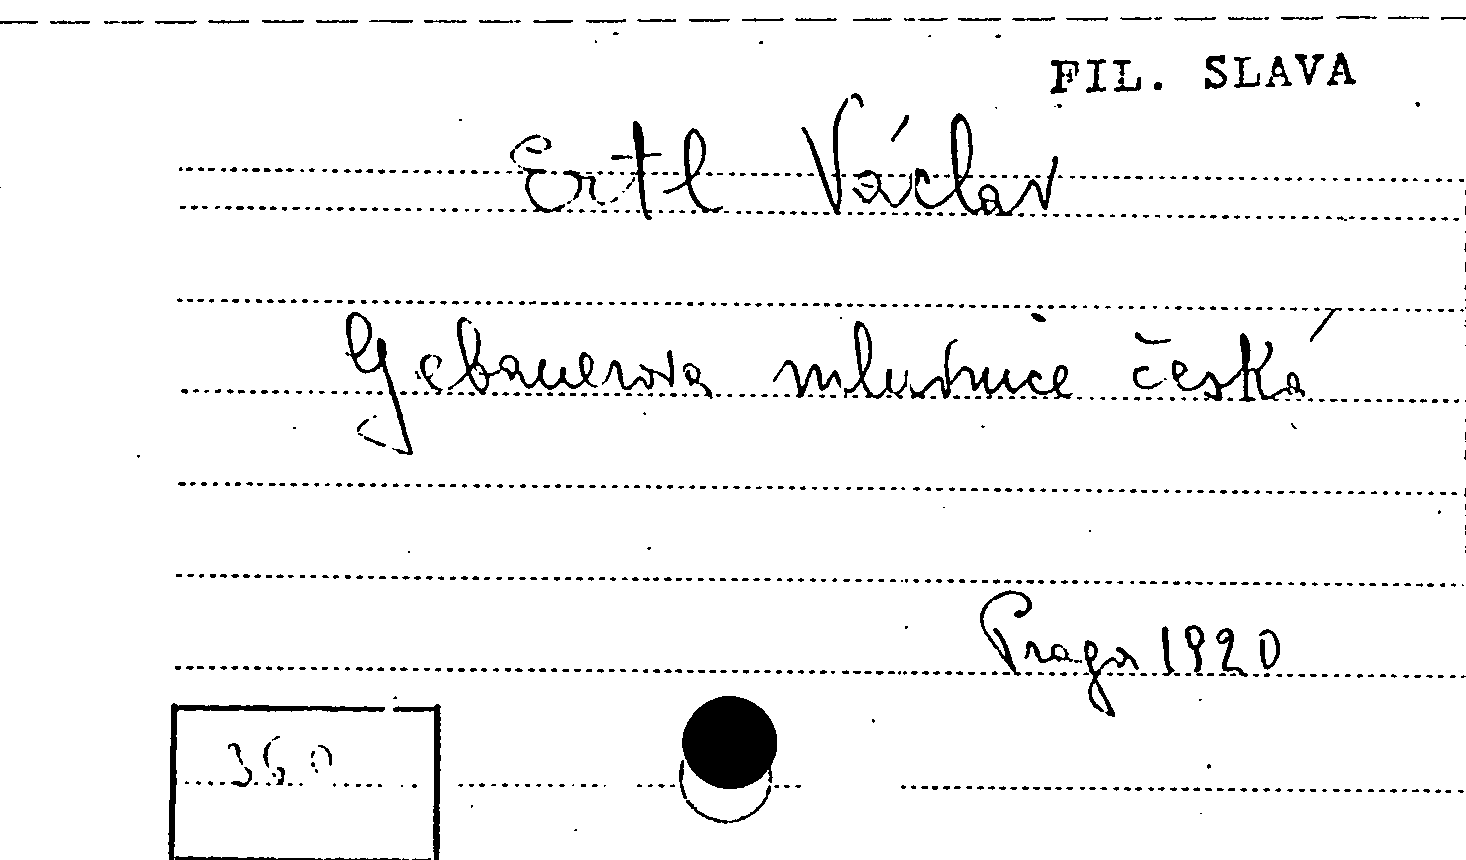 FIL. SLAVA
Ertl Václav
Gebauerova mluvnice česká
Praga 1920
360